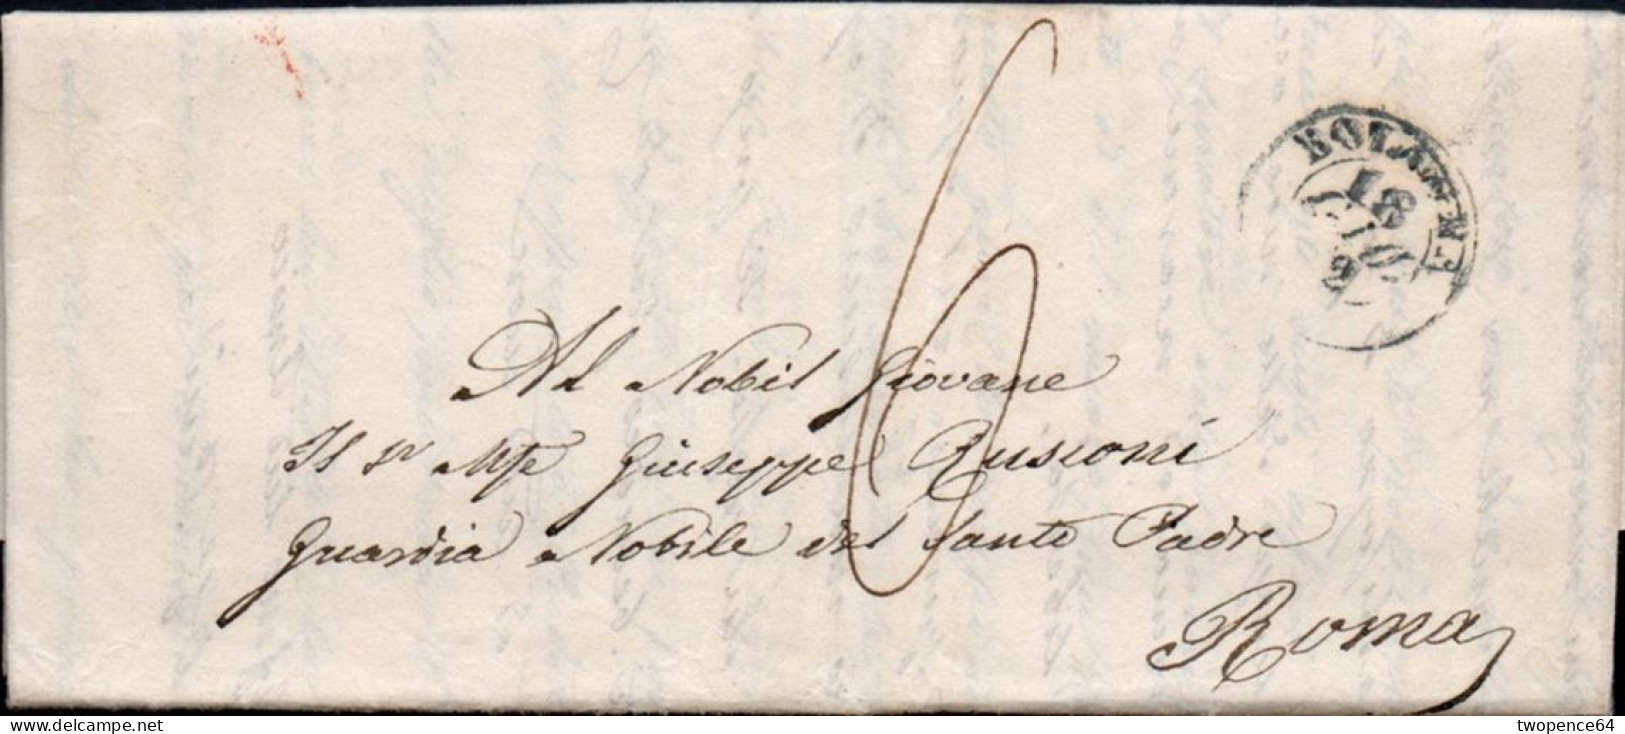 6
BOLOGNE
18
Ad Nobil Giovane
Il Sr Mse Giuseppe Rusconi
Guardia Nobile del Santo Padre
Roma
https://www.delcampe.net
twopence64